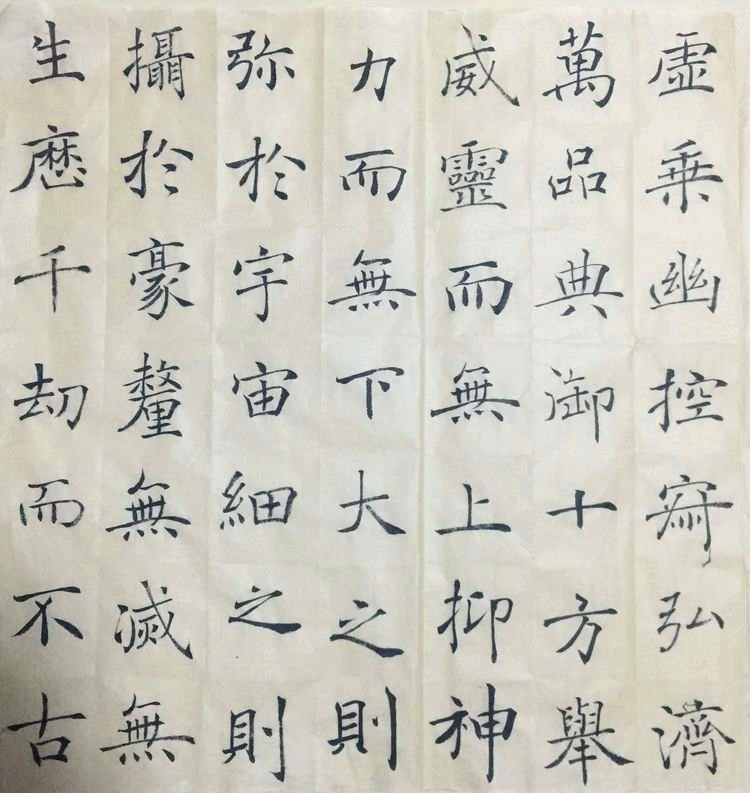 虛乗幽控寂弘濟
萬品典御十方舉
威靈而無上抑神
力而無下大之則
弥於宇宙細之則
攝於豪釐無滅無
生歷千劫而不古